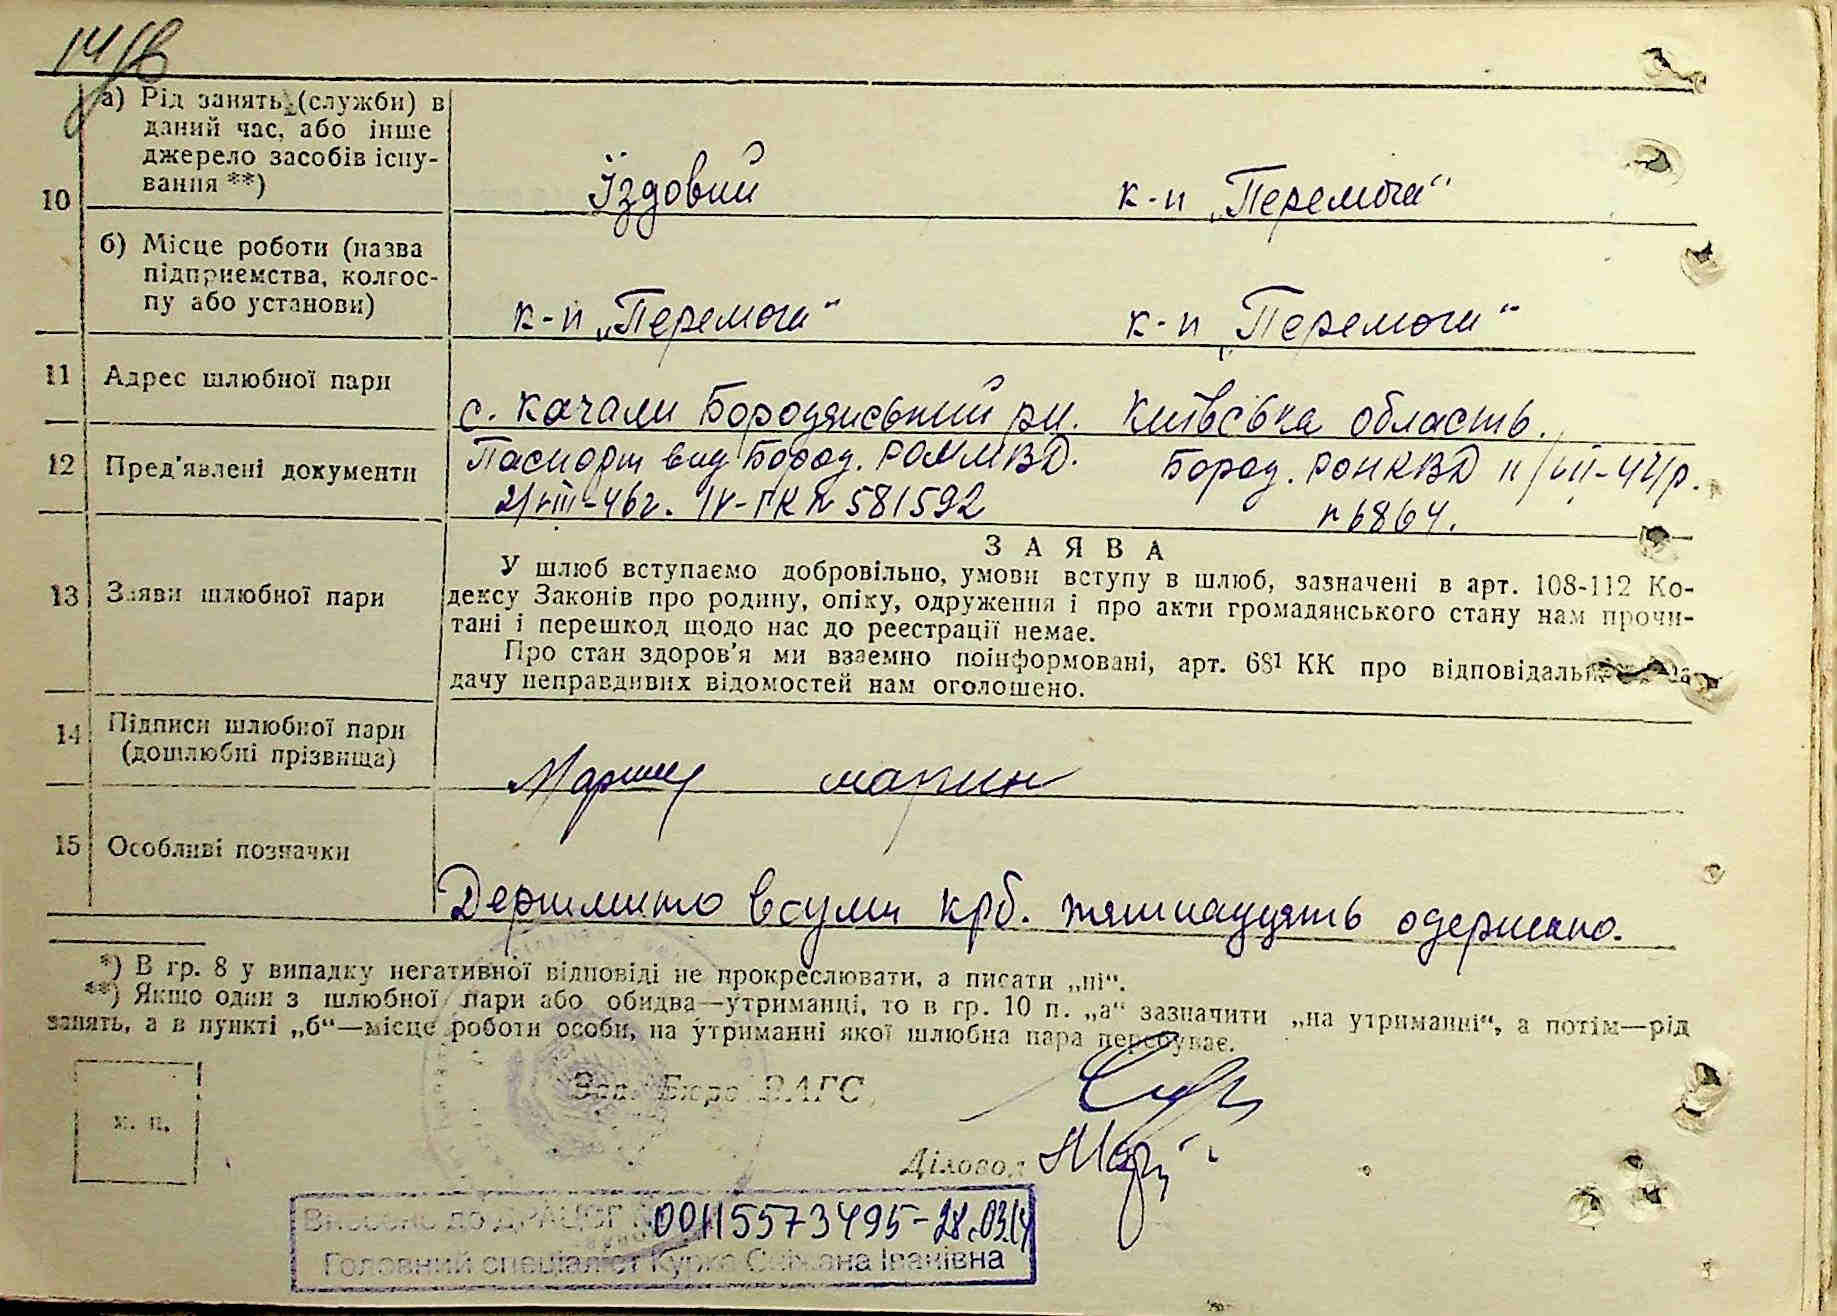 14/в
а) Рід занять (служби) в
даний час, або інше
джерело засобів існу-
вання **)
10
Їздовий
к-п „Перемога“
б) Місце роботи (назва
підприємства, колгос-
пу або установи)
к-п „Перемоги“
к-п „Перемоги“
11 Адрес шлюбної пари
с. Качали Бородянський рн. Київська область.
12 Пред'явлені документи
Паспорт вид Бород. РОММВД.
2/VIII-46г. IV-ГК № 581592
Бород. РОНКВД 11/VII-44р.
№ 6864.
13 Заяви шлюбної пари
ЗАЯВА
У шлюб вступаємо добровільно, умови вступу в шлюб, зазначені в арт. 108-112 Ко-
дексу Законів про родину, опіку, одруження і про акти громадянського стану нам прочи-
тані і перешкод щодо нас до реєстрації немає.
Про стан здоров'я ми взаємно поінформовані, арт. 68¹ КК про відповідальн
дачу неправдивих відомостей нам оголошено.
14 Підписи шлюбної пари
(дошлюбні прізвища)
15 Особливі позначки
Держмито всуми крб. пятнадцять одержано.
*) В гр. 8 у випадку негативної відповіді не прокреслювати, а писати „ні“.
**) Якщо один з шлюбної пари або обидва—утриманці, то в гр. 10 п. „а“ зазначити „на утриманні“, а потім—рід
занять, а в пункті „б“—місце роботи особи, на утриманні якої шлюбна пара перебуває.
Зав. Бюро ЗАГС
м. п.
Діловод
Внесено до ДРАЦСГ № 00115573495-28.03.14
Головний спеціаліст Курка Сніжана Іванівна